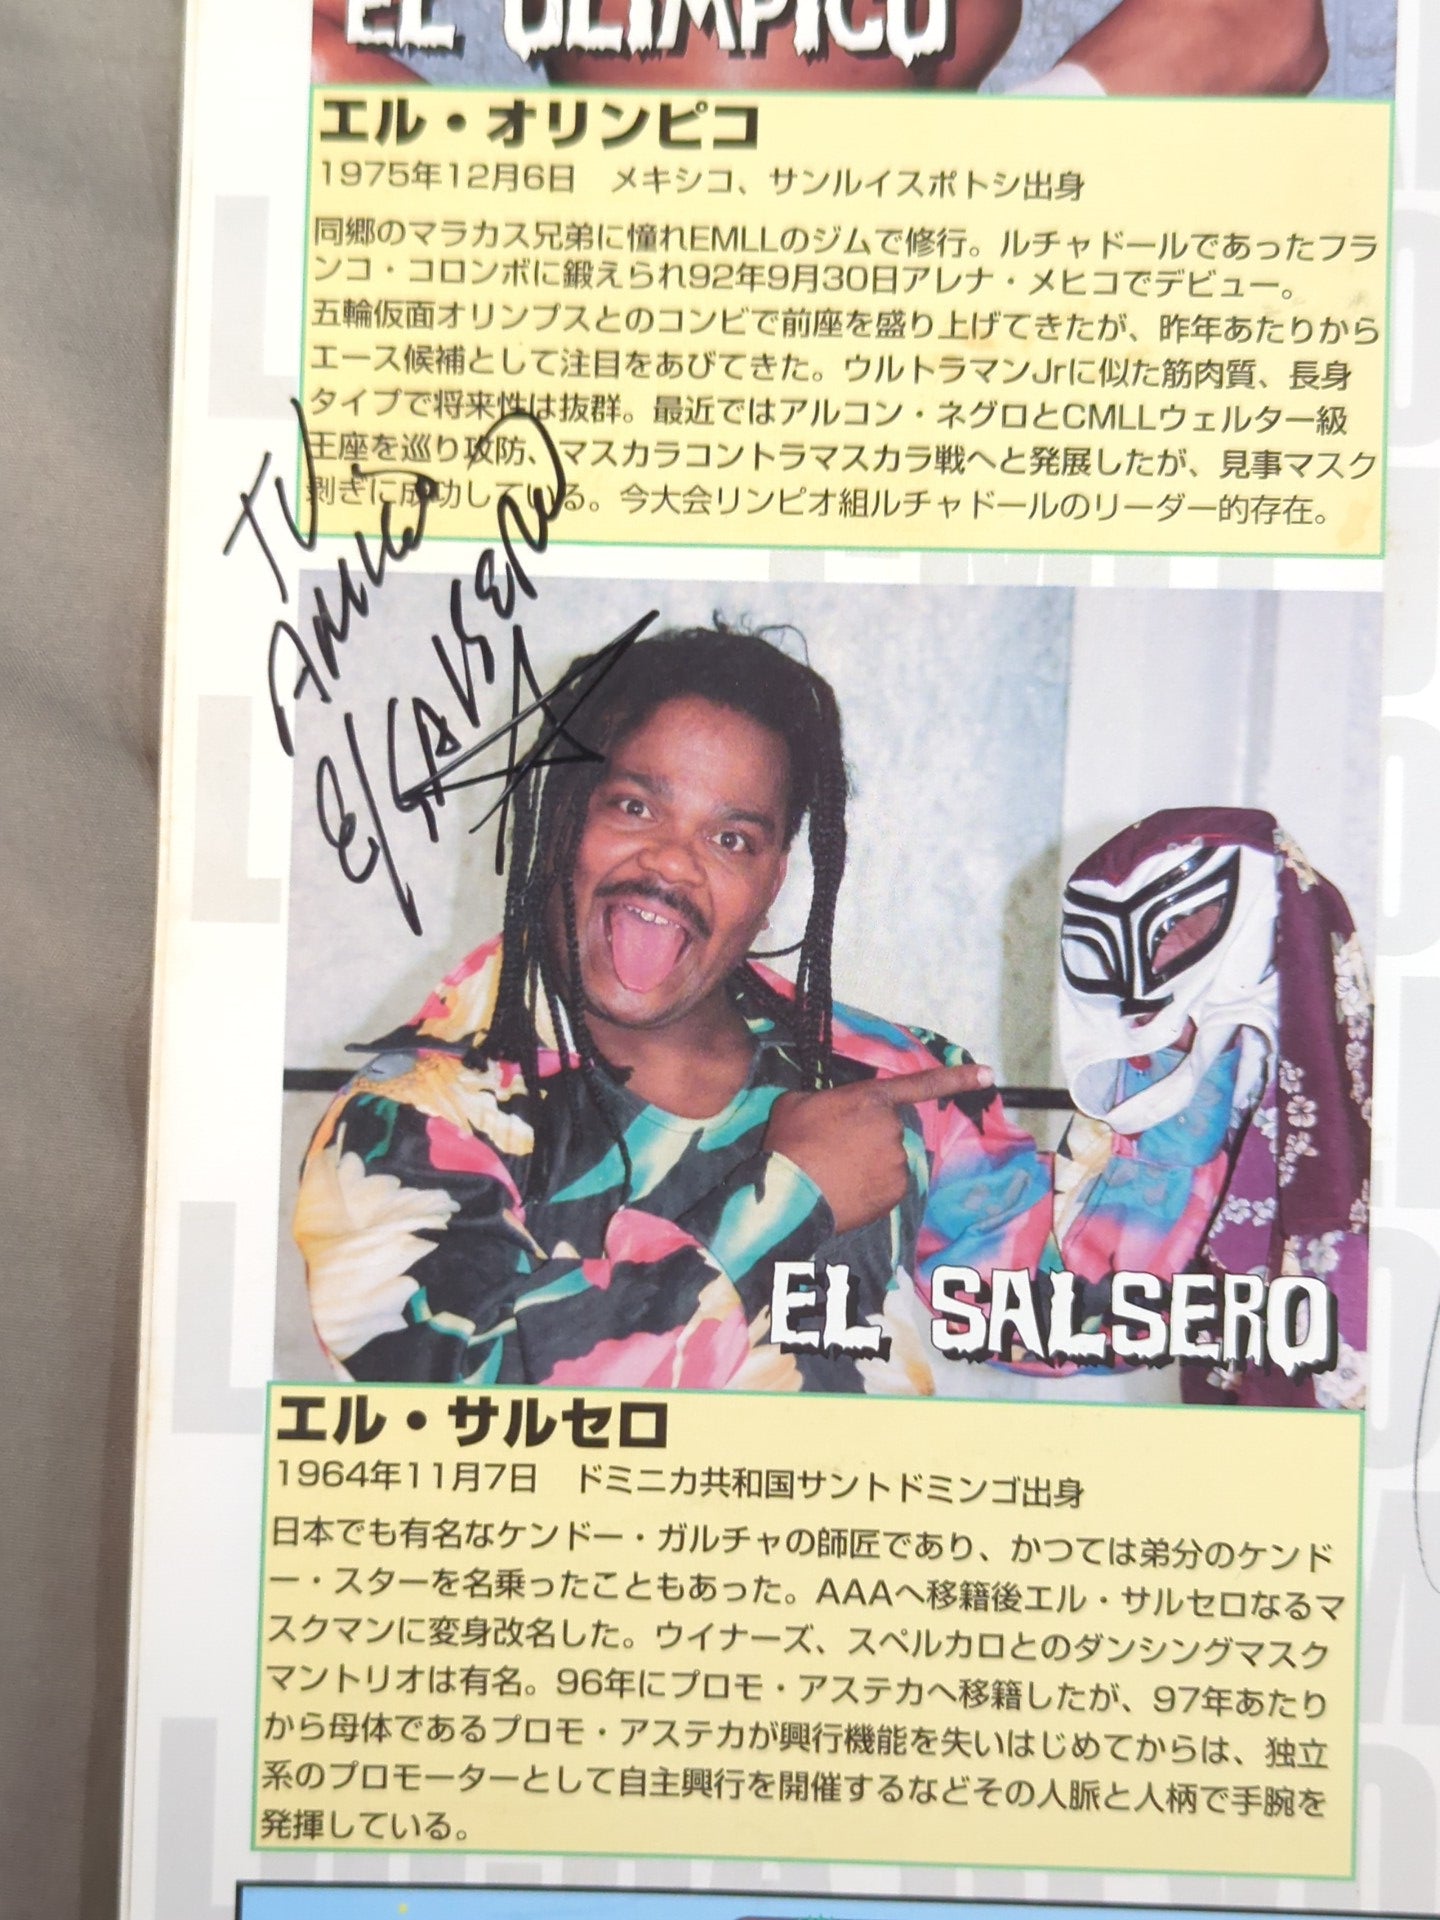 EL OLIMPICO
エル・オリンピコ
1975年12月6日　メキシコ、サンルイスポトシ出身
同郷のマラカス兄弟に憧れEMLLのジムで修行。ルチャドールであったフラ
ンコ・コロンボに鍛えられ92年9月30日アレナ・メヒコでデビュー。
五輪仮面オリンプスとのコンビで前座を盛り上げてきたが、昨年あたりから
エース候補として注目をあびてきた。ウルトラマンJrに似た筋肉質、長身
タイプで将来性は抜群。最近ではアルコン・ネグロとCMLLウェルター級
王座を巡り攻防、マスカラコントラマスカラ戦へと発展したが、見事マスク
剥ぎに成功している。今大会リンピオ組ルチャドールのリーダー的存在。
TU
AMIGO
El SALSERO
EL SALSERO
エル・サルセロ
1964年11月7日　ドミニカ共和国サントドミンゴ出身
日本でも有名なケンドー・ガルチャの師匠であり、かつては弟分のケンド
ー・スターを名乗ったこともあった。AAAへ移籍後エル・サルセロなるマ
スクマンに変身改名した。ウイナーズ、スペルカロとのダンシングマスク
マントリオは有名。96年にプロモ・アステカへ移籍したが、97年あたり
から母体であるプロモ・アステカが興行機能を失いはじめてからは、独立
系のプロモーターとして自主興行を開催するなどその人脈と人柄で手腕を
発揮している。